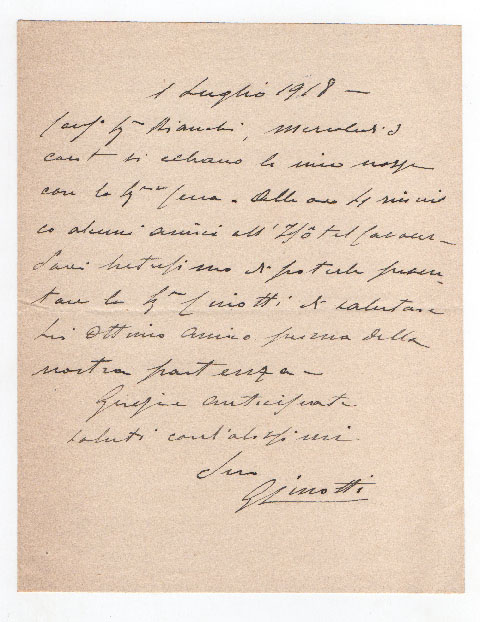 1 Luglio 1918 —
Sig. Bianchi, Mercoledì 3
corrt si celebrano le mie nozze
con la Sig.na Cena. Alle ore 14 riunis
co alcuni amici all'Hôtel Cavour —
Sarei lietissimo di poterle presen-
tare la Sig.ra Ginotti e di salutare
Lei ottimo amico prima della
nostra partenza —
Grazie anticipate
saluti cordialissimi
Suo
GGinotti